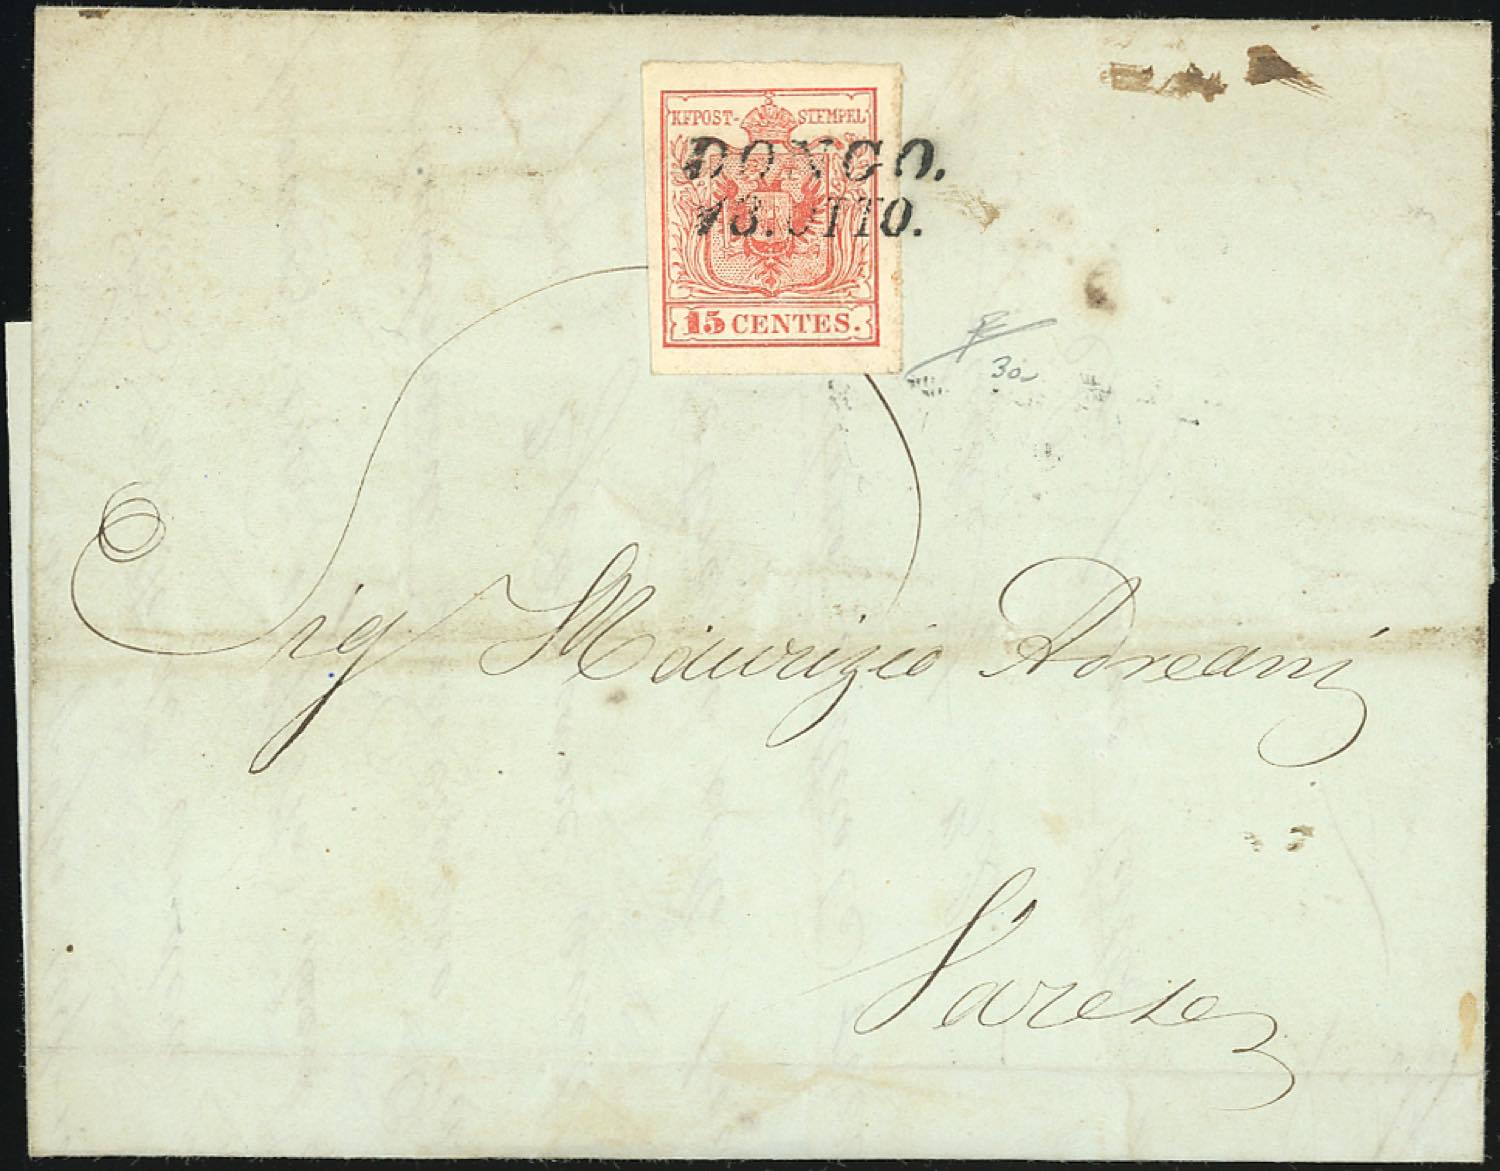 KKPOST-STEMPEL
DONGO.
13. OTTO.
15 CENTES.
30
Sig Maurizio Adreani
Varese